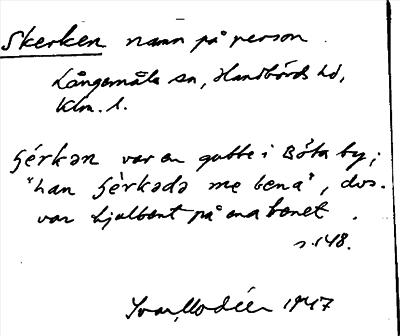 Skerken namn på person.
Långemåla sn, Handbörds hd,
Klm. l.
ʃérkən var en gubbe i Böta by;
"han ʃèrkədə me bena", dvs.
var hjulbent på ena benet.
s. 148.
Ivar Modéer 1947